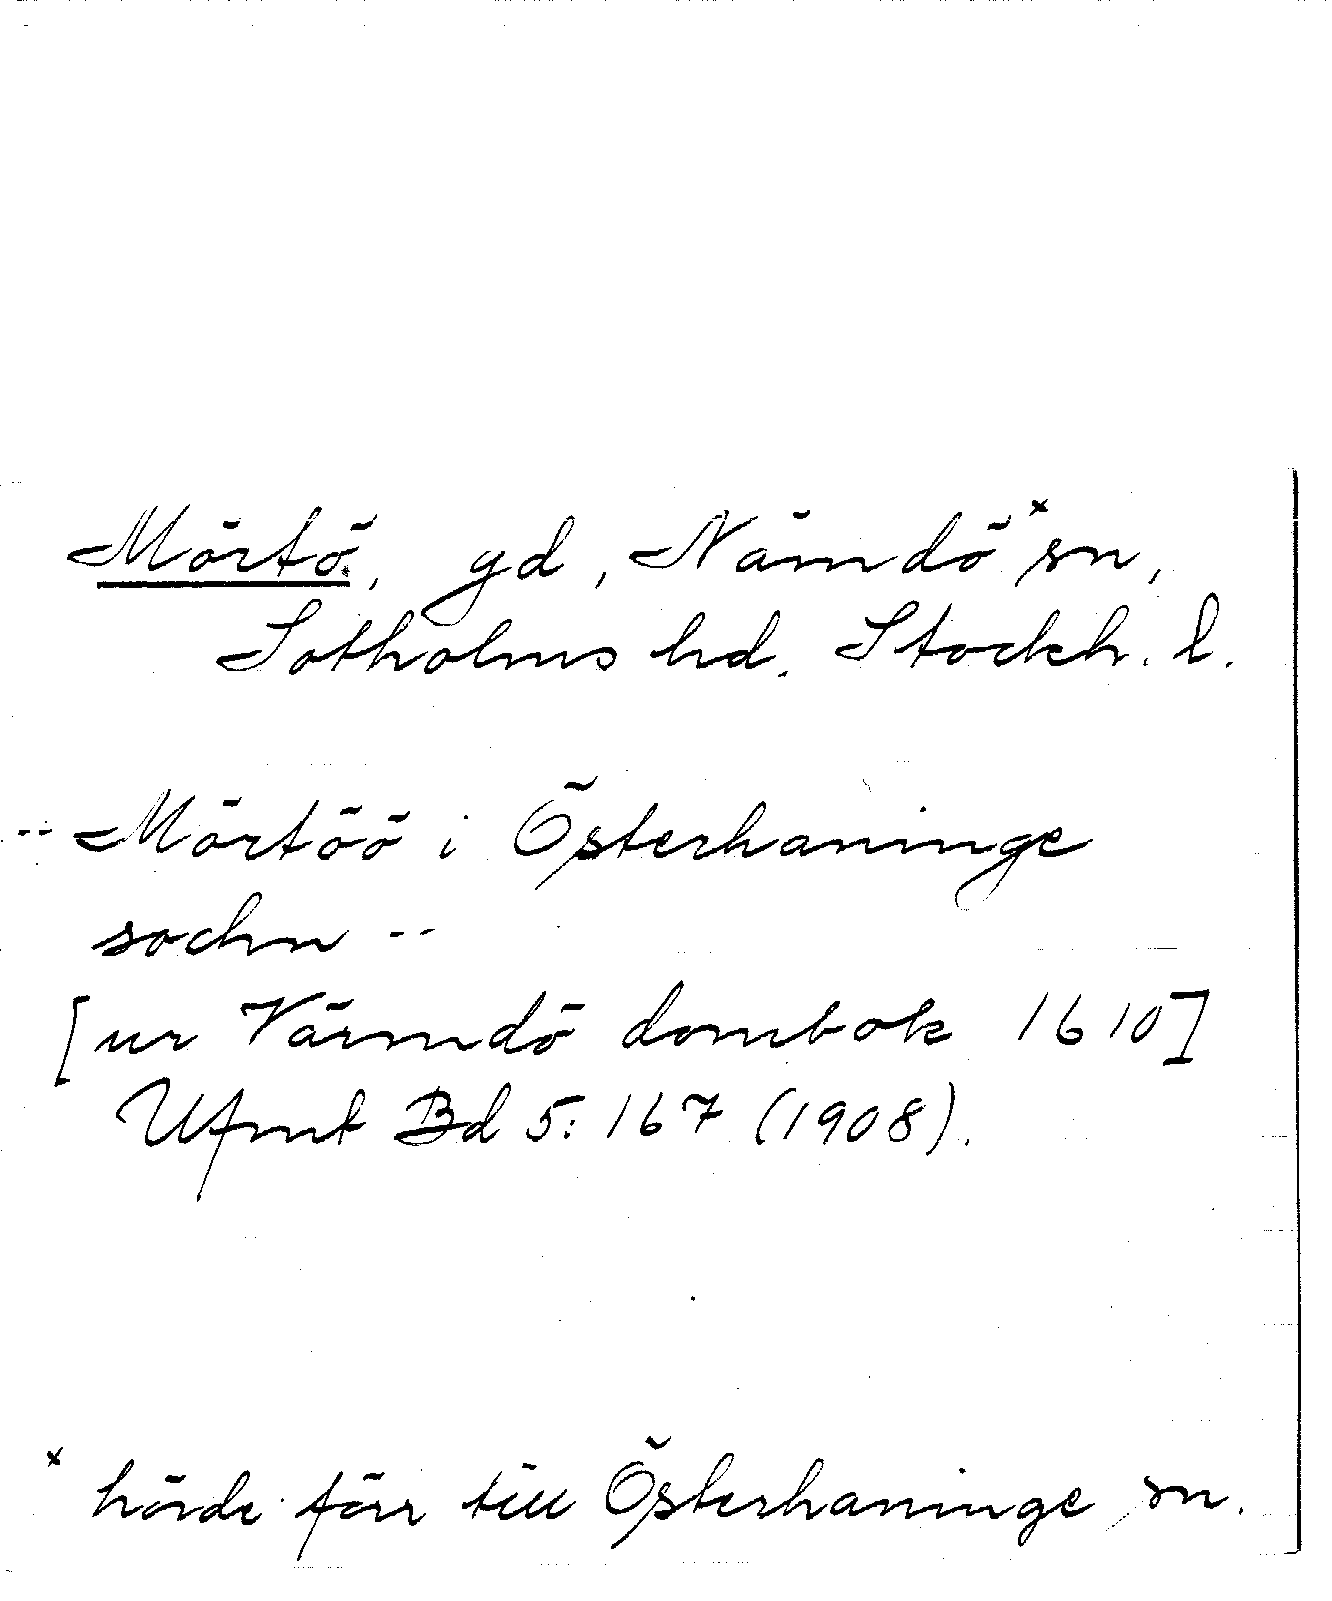 Mörtö, gd, Nämdö× sn,
Sotholms hd. Stockh. l.
-- Mörtöö i Österhaninge
sochn --
[ur Värmdö dombok 1610]
Ufmt Bd 5: 167 (1908).
× hörde förr till Österhaninge sn.